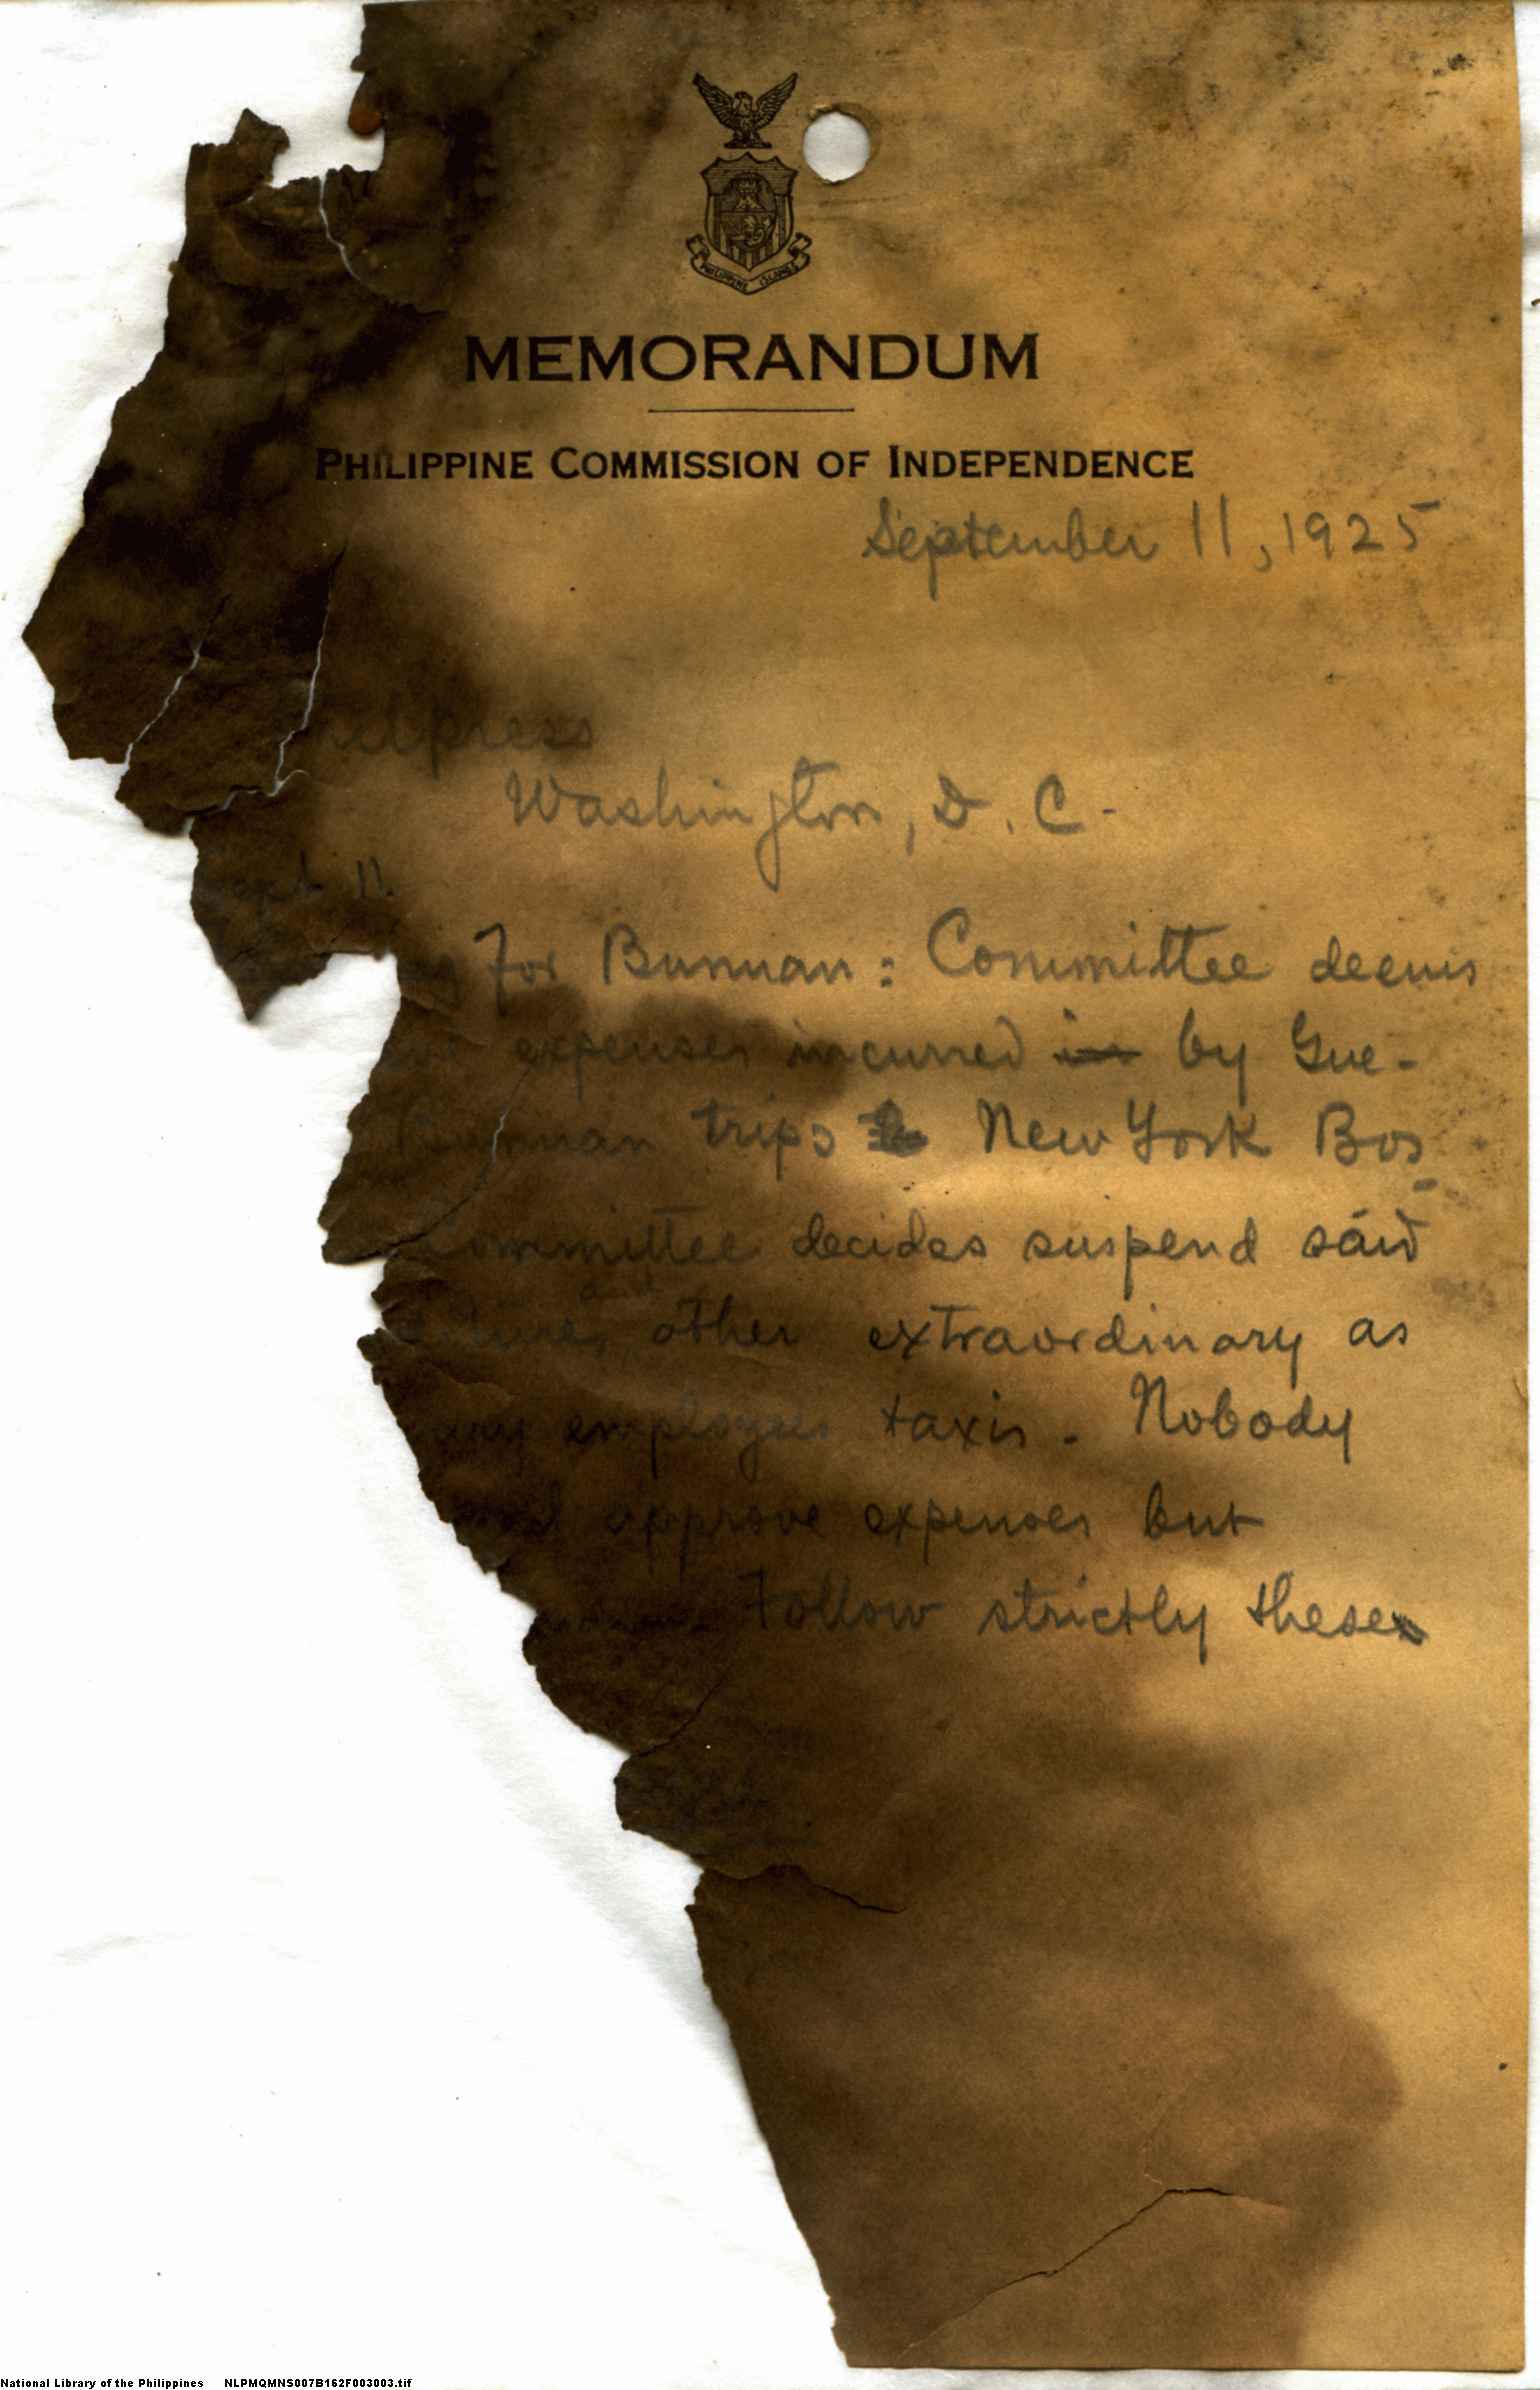 PHILIPPINE ISLANDS
MEMORANDUM
PHILIPPINE COMMISSION OF INDEPENDENCE
September 11, 1925
Washington, D. C.
11.
For Bunuan: Committee deems
expenses incurred in by Gue-
Bunuan trips New York Bos
Committee decides suspend said
and
other extraordinary as
employees taxis. Nobody
approve expenses but
Follow strictly these
National Library of the Philippines NLPMQMNS007B162F003003.tif